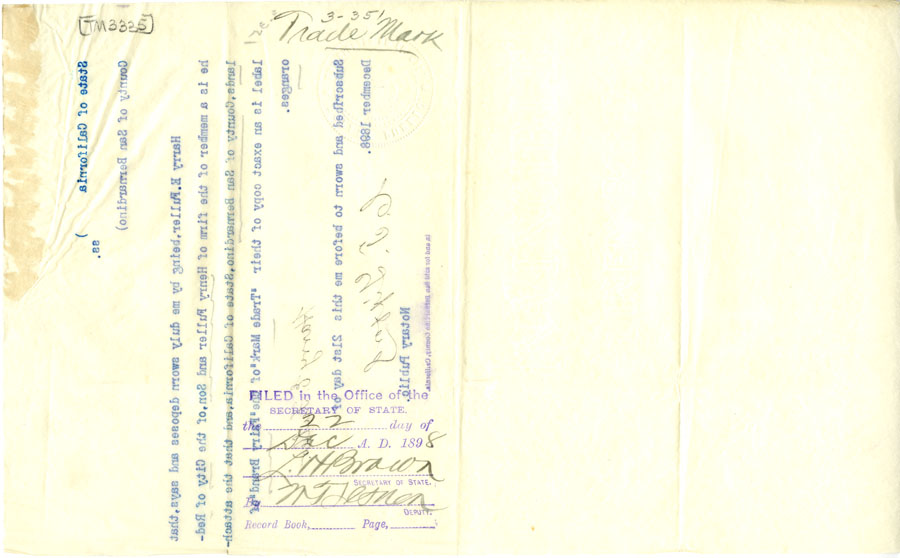 [TM3325]
3-351
Trade Mark
State of California )
ss.
County of San Bernardino)
Harry E.Fuller,being by me duly sworn deposes and says,that
he is a member of the firm of Henry Fuller and Son,of the City of Red-
lands,County of San Bernardino,State of California,and that the attach-
label is an exact copy of their "Trade Mark"of the"Fairy Brand"of
oranges.
Subscribed and sworn to before me this 21st day of
December 1898.
Notary Public.
in and for San Bernardino County, California.
FILED in the Office of the
SECRETARY OF STATE.
the 22 day of
Dec A. D. 1898
L. H. Brown
SECRETARY OF STATE.
By
DEPUTY.
Record Book, Page,